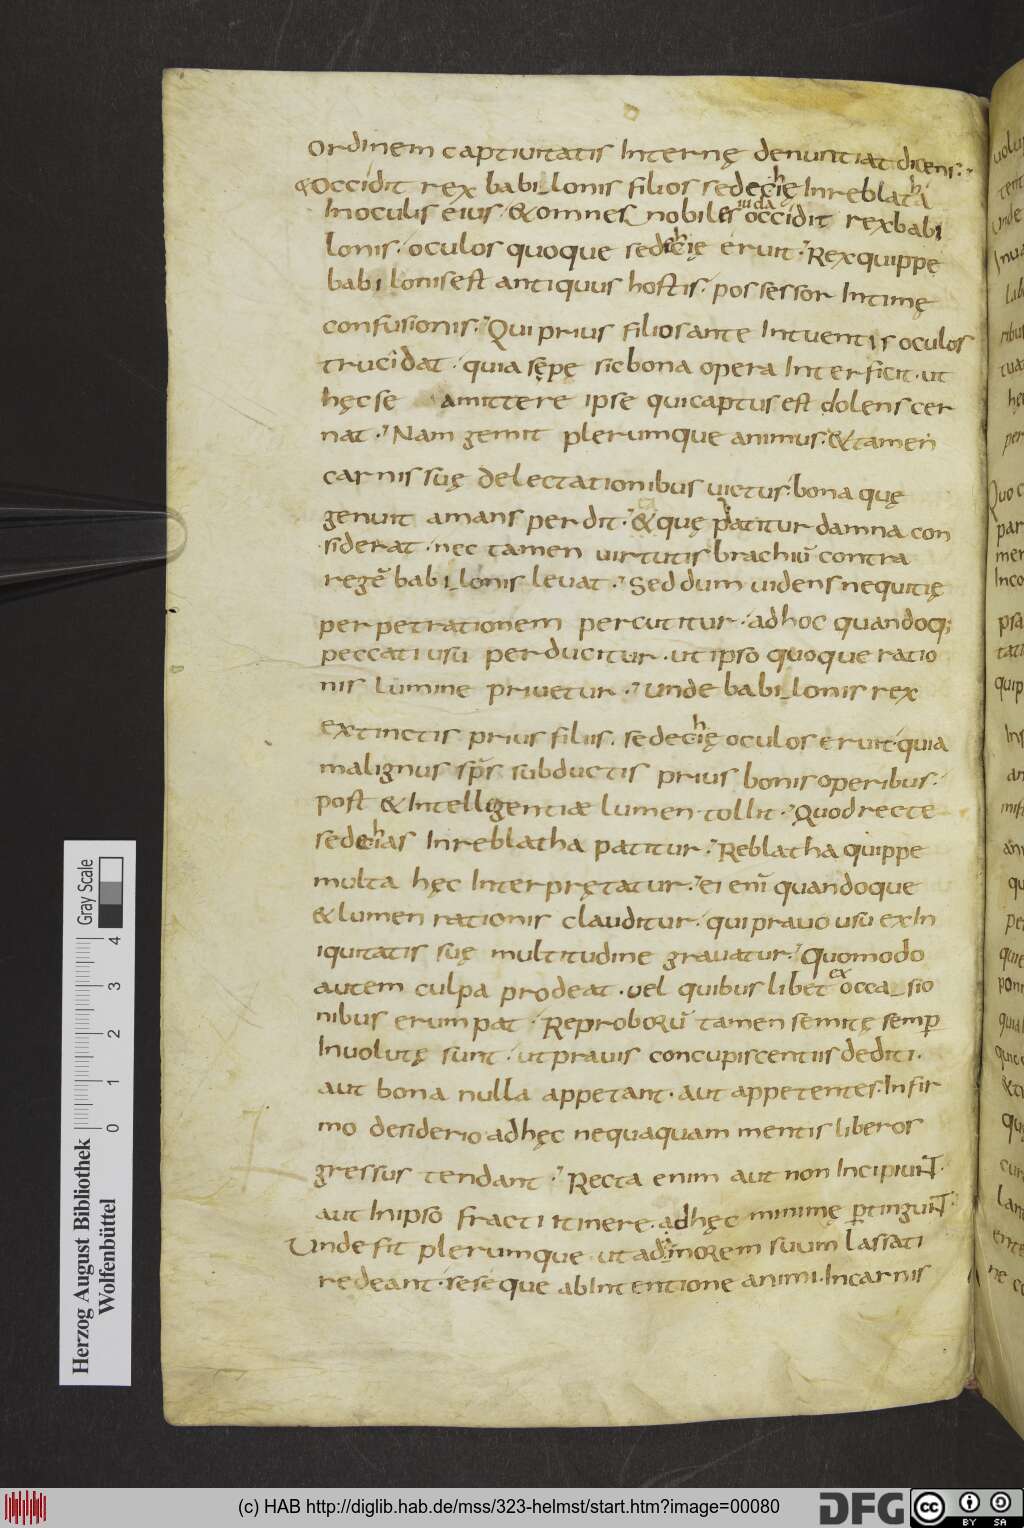 ordinem captiuitatis Internę denuntiat dicens.
& Occidit rex babi_lonis filios sedechię Inreblatha
Inoculis eius. & omnes nobiles iuda occidit rex babi
lonis. oculos quoque sedechię eruit. Rex quippe
babilonis est antiquus hostis. possessor Intimę
confusionis. Qui prius filios ante Intuentis oculos
trucidat. quia sępę sic bona opera Interficit. ut
hęc se amittere ipse qui captus est dolens cer
nat. Nam gemit plerumque animus. & tamen
carnis suę delectationibus uictus. bona quę
genuit amans perdit. & ea quę patitur damna con
siderat. nec tamen uirtutis brachiū contra
regē babi_lonis leuat. Sed dum uidens nequitię
perpetrationem percutitur. ad hoc quandoq;
peccati usu perducitur. ut ipso quoque ratio
nis lumine priuetur. unde babi_lonis rex
extinctis prius filiis. sedechię oculos eruit. quia
malignus sps̄ subductis prius bonis operibus.
post & Intelligentiæ lumen tollit. Quod recte
sedechias Inreblatha patitur. Reblatha quippe
multa hęc Interprętatur. ei enī quandoque
& lumen rationis clauditur. qui prauo usu ex In
iquitatis suę multitudine grauatur. Quomodo
autem culpa prodeat. uel quibus libet ex occa_sio
nibus erumpat. Reproborū tamen semitę semp̱
Inuolutę sunt. ut prauis concupiscentiis dediti.
aut bona nulla appetant. aut appetentes. Infir
mo desiderio ad hęc nequaquam mentis liberos
gressus tendant. Recta enim aut non Incipiunt.
aut In ipso fracti itinere. ad hęc minimę p̱tingunt.
Unde fit plerumque ut ad morem suum lassati
redeant. sese que ab Intentione animi. In carnis
Herzog August Bibliothek
Wolfenbüttel
0 1 2 3 4
Gray Scale
(c) HAB http://diglib.hab.de/mss/323-helmst/start.htm?image=00080
DFG
cc BY SA